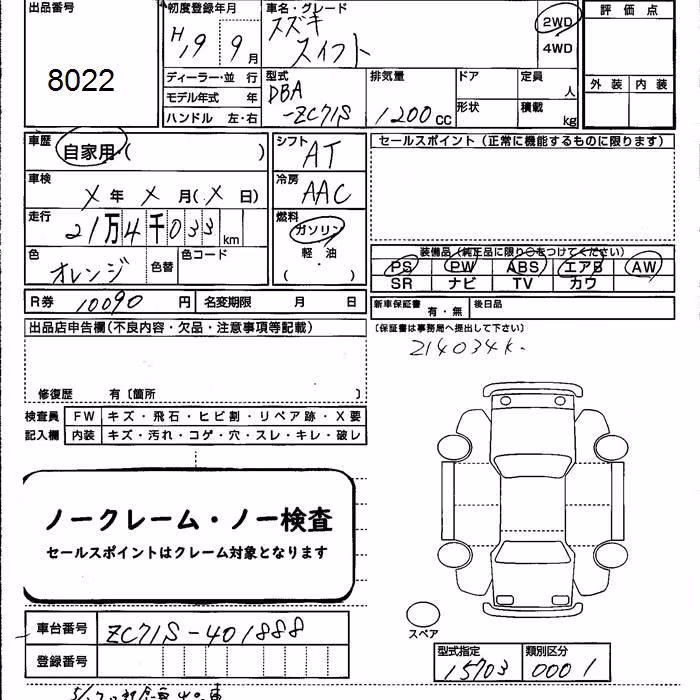 出品番号
8022
初度登録年月
H19 9月
車名・グレード
スズキ
スイフト
2WD
4WD
評価点
外装 内装
ディーラー・並行
モデル年式 年
ハンドル 左・右
型式
DBA
-ZC71S
排気量
1200cc
ドア
形状
定員
人
積載
kg
車歴
自家用・( )
車検
X年X月(X日)
走行
21万4千033km
色
オレンジ
色替
色コード
シフト
AT
冷房
AAC
燃料
ガソリン
軽油
・
( )
セールスポイント(正常に機能するものに限ります)
装備品(純正品に限り○をつけてください)
PS PW ABS エアB AW
SR ナビ TV カワ
R券 10090円
名変期限 月 日
新車保証書 有・無
後日品
(保証書は事務局へ提出して下さい)
214034K.
出品店申告欄(不良内容・欠品・注意事項等記載)
修復歴 有〔箇所 〕
検査員
記入欄
FW キズ・飛石・ヒビ割・リペア跡・X要
内装 キズ・汚れ・コゲ・穴・スレ・キレ・破レ
ノークレーム・ノー検査
セールスポイントはクレーム対象となります
車台番号 ZC71S-401888
登録番号
スペア
型式指定 15703
類別区分 0001